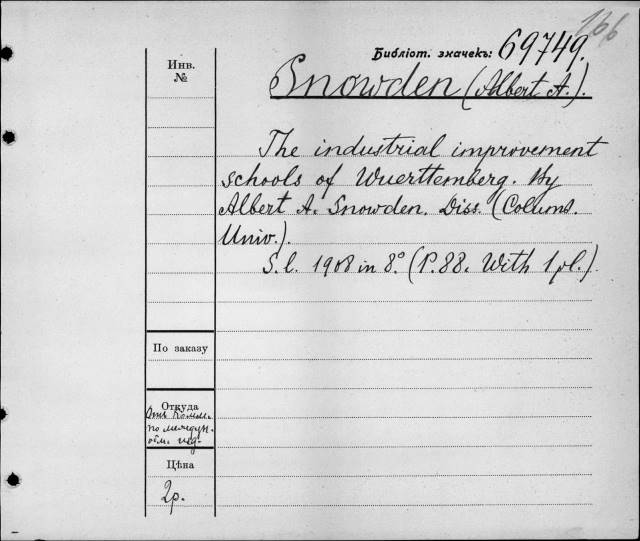 166
Библіот. значекъ: 69749.
Инв.
№
Snowden (Albert A.).
The industrial improvement
schools of Wuerttemberg. By
Albert A. Snowden. Diss. (Columb.
Univ.).
S. l. 1908 in 8.° (P. 88. With 1 pl.).
По заказу
Откуда
Отъ Комм.
по междун.
обм. изд.
Цѣна
2 р.